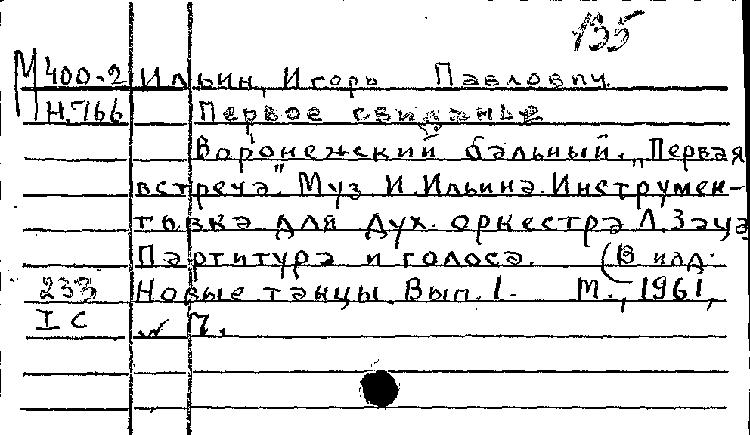 135
М 400-2 Ильин, Игорь Павлович
Н.766 Первое свиданье
Воронежский бальный. „Первая
встреча". Муз И. Ильина. Инструмен-
товка для дух. оркестра Л. Заца
Партитура и голоса. (В изд:
233 Новые танцы. Вып. 1. М., 1961,
IC № 7.